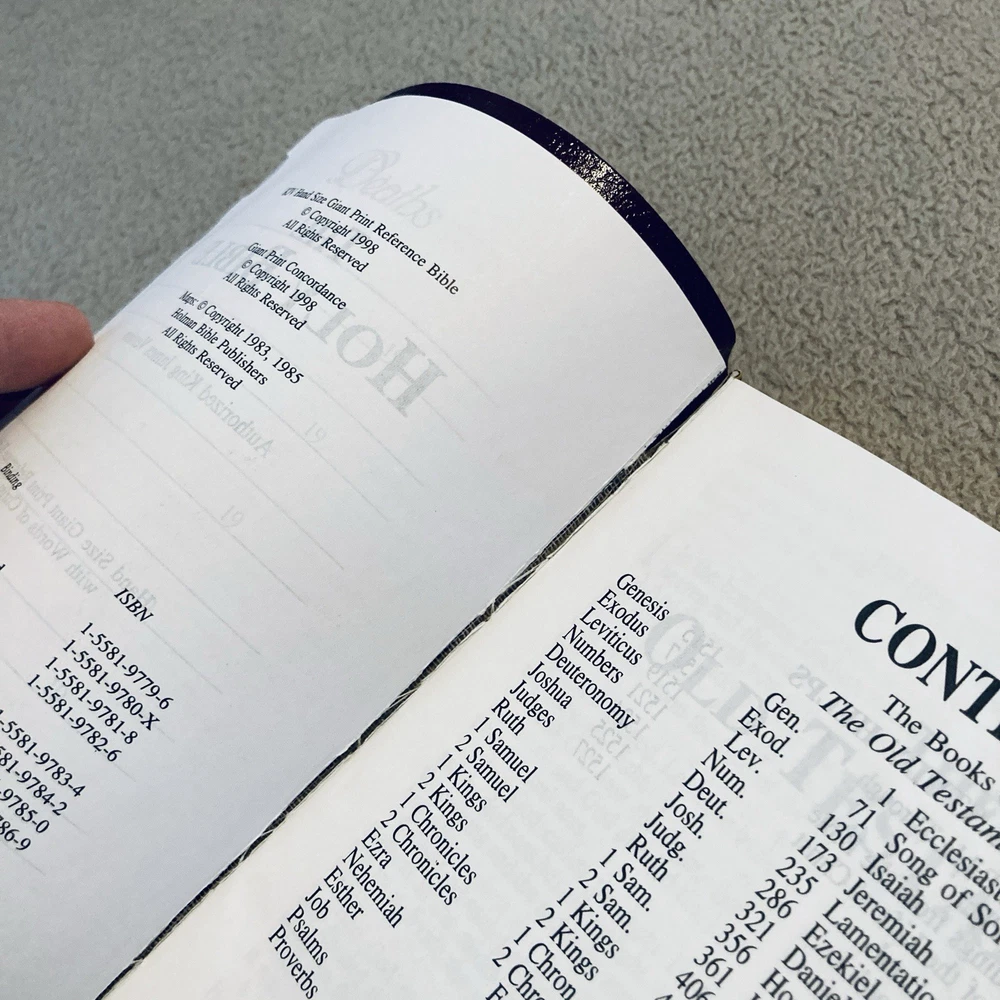 KJV Hand Size Giant Print Reference Bible
© Copyright 1998
All Rights Reserved
Giant Print Concordance
© Copyright 1998
All Rights Reserved
Maps: © Copyright 1983, 1985
Holman Bible Publishers
All Rights Reserved
Binding
ISBN
1-5581-9779-6
1-5581-9780-X
1-5581-9781-8
1-5581-9782-6
1-5581-9783-4
-5581-9784-2
-9785-0
86-9
CONT
The Books
The Old Testam
Genesis Gen. 1
Exodus Exod. 71
Leviticus Lev. 130
Numbers Num. 173
Deuteronomy Deut. 235
Joshua Josh. 286
Judges Judg. 321
Ruth Ruth 356
1 Samuel 1 Sam. 361
2 Samuel 2 Sam.
1 Kings 1 Kings
2 Kings 2 Kings
1 Chronicles 1 Chron
2 Chronicles 2 Chro
Ezra
Nehemiah
Esther
Job
Psalms
Proverbs
Ecclesiast
Song of Sol
Isaiah
Jeremiah
Lamentatio
Ezekiel
Danie
Ho